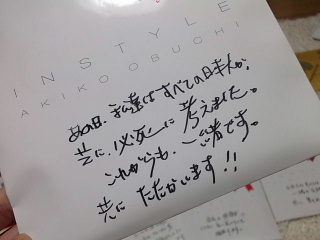 INSTYLE
AKIKO OBUCHI
あの日、私達はすべての日本人が、
共に、必死に考えました。
これからも、一緒です。
共にたたかいます!!